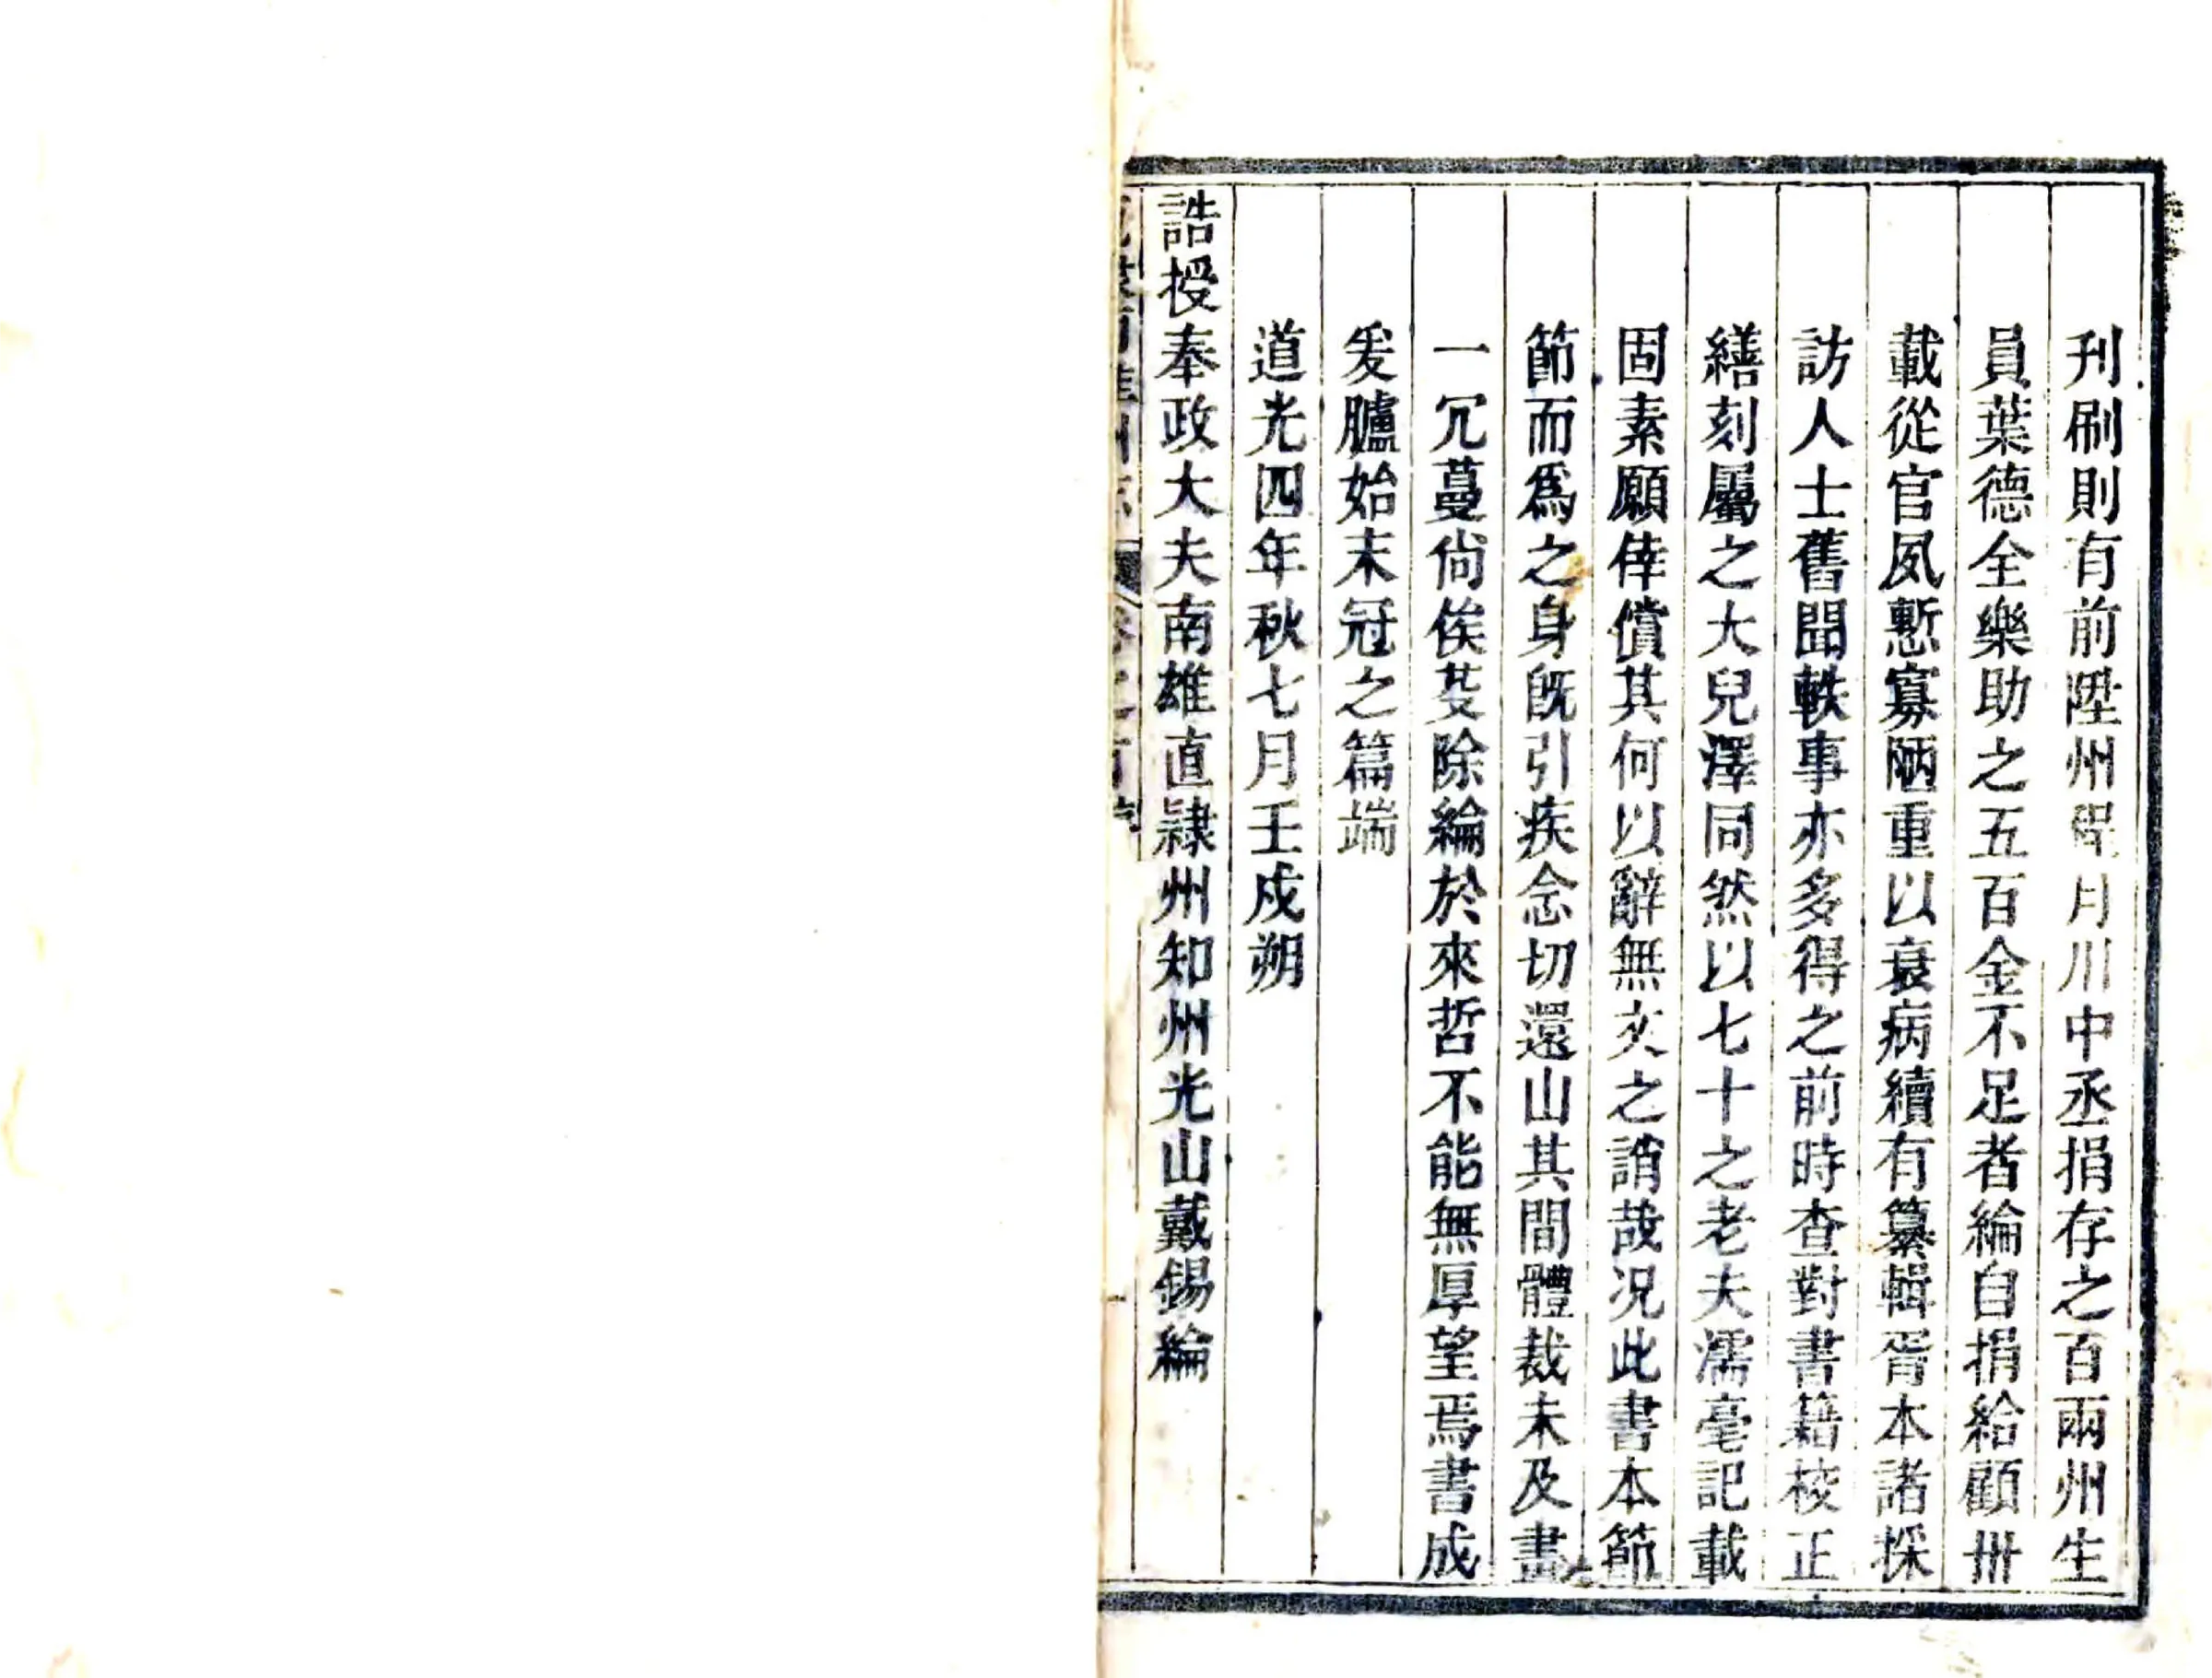 刊刷則有前陞州程月川中丞捐存之百兩州生
員葉德全樂助之五百金不足者綸自捐給顧卅
載從官夙慙寡陋重以衰病續有纂輯胥本諸採
訪人士舊聞軼事亦多得之前時查對書籍校正
繕刻屬之大兒澤同然以七十之老夫濡毫記載
固素願倖償其何以辭無文之誚哉况此書本節
節而爲之身既引疾念切還山其間體裁未及畫
一冗蔓尙俟芟除綸於來哲不能無厚望焉書成
爰臚始末冠之篇端
道光四年秋七月壬戌朔
誥授奉政大夫南雄直隷州知州光山戴錫綸